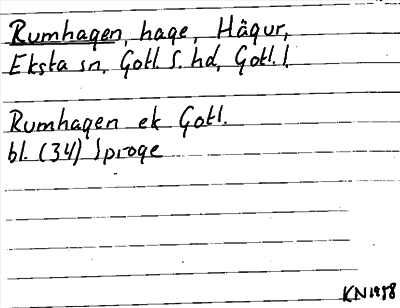 Rumhagen, hage, Hägur,
Eksta sn, Gotl. S. hd, Gotl. l.
Rumhagen ek Gotl.
bl. (34) Sproge
KN 1958